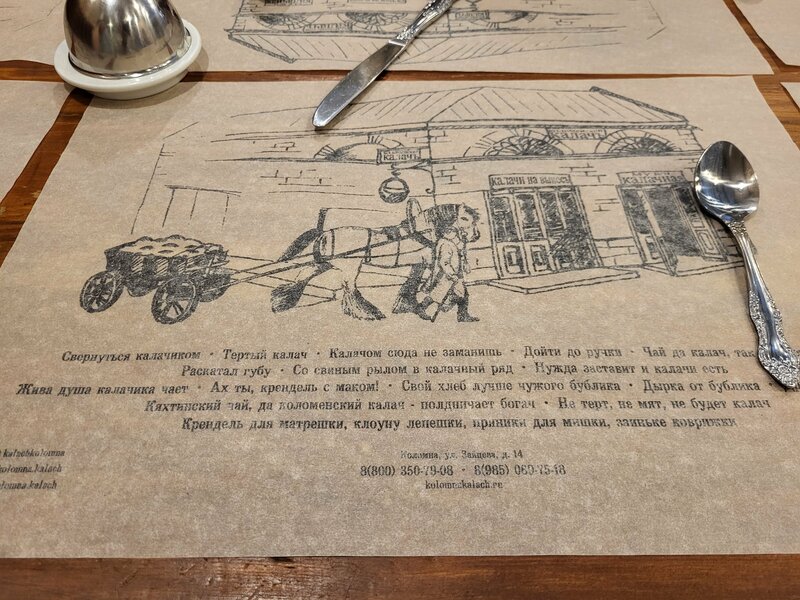 калачъ
калачъ
калачи на выносъ
калачная
Свернуться калачиком · Тертый калач · Калачом сюда не заманишь · Дойти до ручки · Чай да калач, так
Раскатал губу · Со свиным рылом в калачный ряд · Нужда заставит и калачи есть
Жива душа калачика чает · Ах ты, крендель с маком! · Свой хлеб лучше чужого бублика · Дырка от бублика
Кяхтинский чай, да коломенский калач - полдничает богач · Не терт, не мят, не будет калач
Крендель для матрешки, клоуну лепешки, пряники для мишки, заиньке коврижки
Коломна, ул. Зайцева, д. 14
8(800) 350-79-08 · 8(985) 060-75-18
kolomnakalach.ru
kalachkolomna
kolomna.kalach
kolomna.kalach